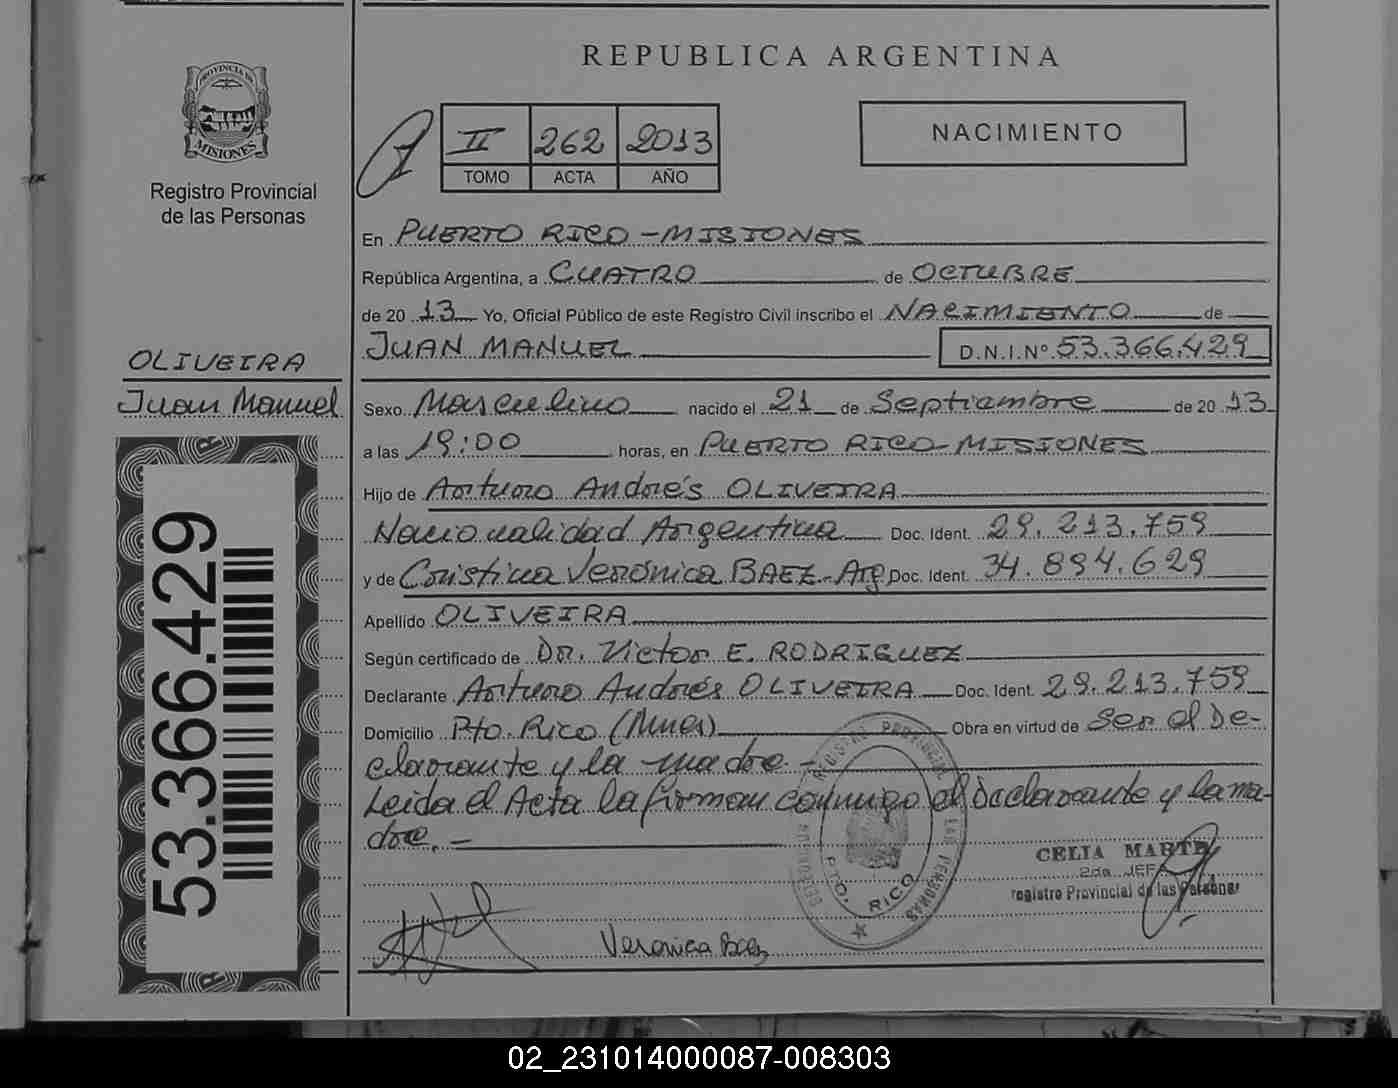 REPUBLICA ARGENTINA
PROVINCIA DE
MISIONES
Registro Provincial
de las Personas
II 262 2013
TOMO ACTA AÑO
NACIMIENTO
En PUERTO RICO - MISIONES
República Argentina, a CUATRO de OCTUBRE
de 2013 Yo, Oficial Público de este Registro Civil inscribo el NACIMIENTO de
JUAN MANUEL D.N.I.Nº 53.366.429
OLIVEIRA
Juan Manuel
Sexo Masculino nacido el 21 de Septiembre de 2013
a las 19:00 horas, en PUERTO RICO - MISIONES
Hijo de Arturo Andrés OLIVEIRA
Nacionalidad Argentina Doc. Ident. 29.213.759
y de Cristina Verónica BAEZ - Arg. Doc. Ident. 34.894.629
Apellido OLIVEIRA
Según certificado de Dr. Victor E. RODRIGUEZ
Declarante Arturo Andrés OLIVEIRA Doc. Ident. 29.213.759
Domicilio Pto. Rico (Mnes) Obra en virtud de Ser el De-
clarante y la madre.-
Leida el Acta la firman conmigo el Declarante y la ma-
dre.-
53.366.429
REGISTRO PROVINCIAL DE LAS PERSONAS
PTO. RICO
CELIA MARTA
2da. JEFA
Registro Provincial de las Personas
Veronica Baez
02_231014000087-008303